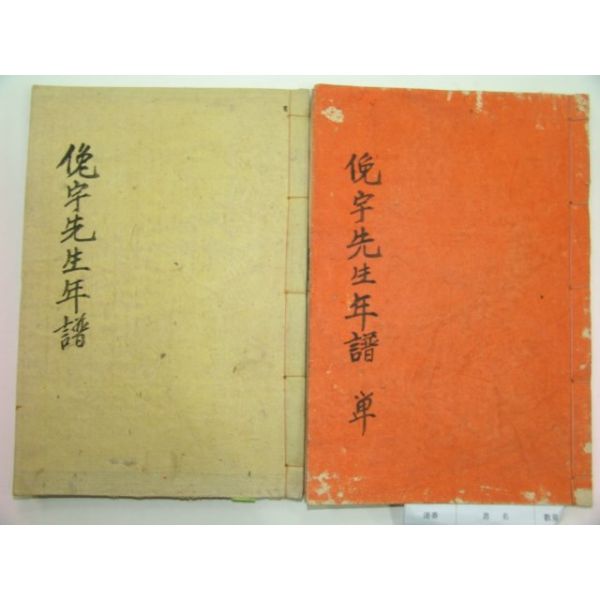 俛宇先生年譜
俛宇先生年譜 単
書名